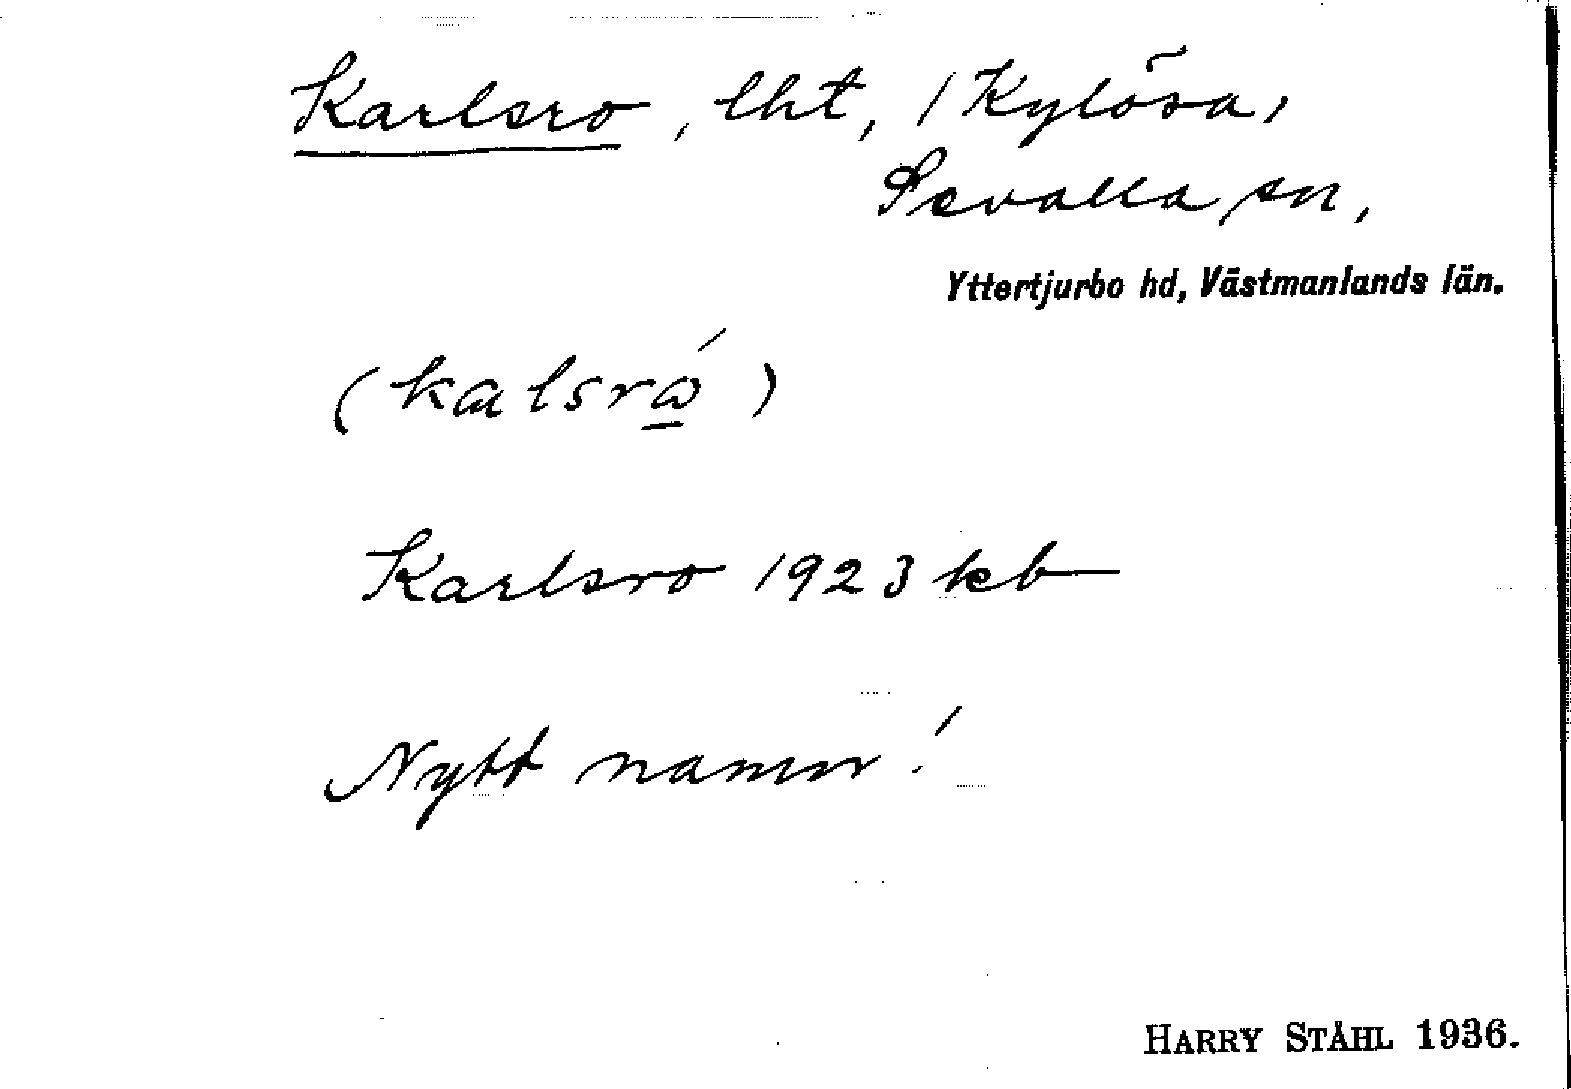 Karlsro, lht, / Kylösa,
Sevalla sn,
Yttertjurbo hd, Västmanlands län.
Karlsro 1923 kb
Nytt namn!
HARRY STÅHL 1936.